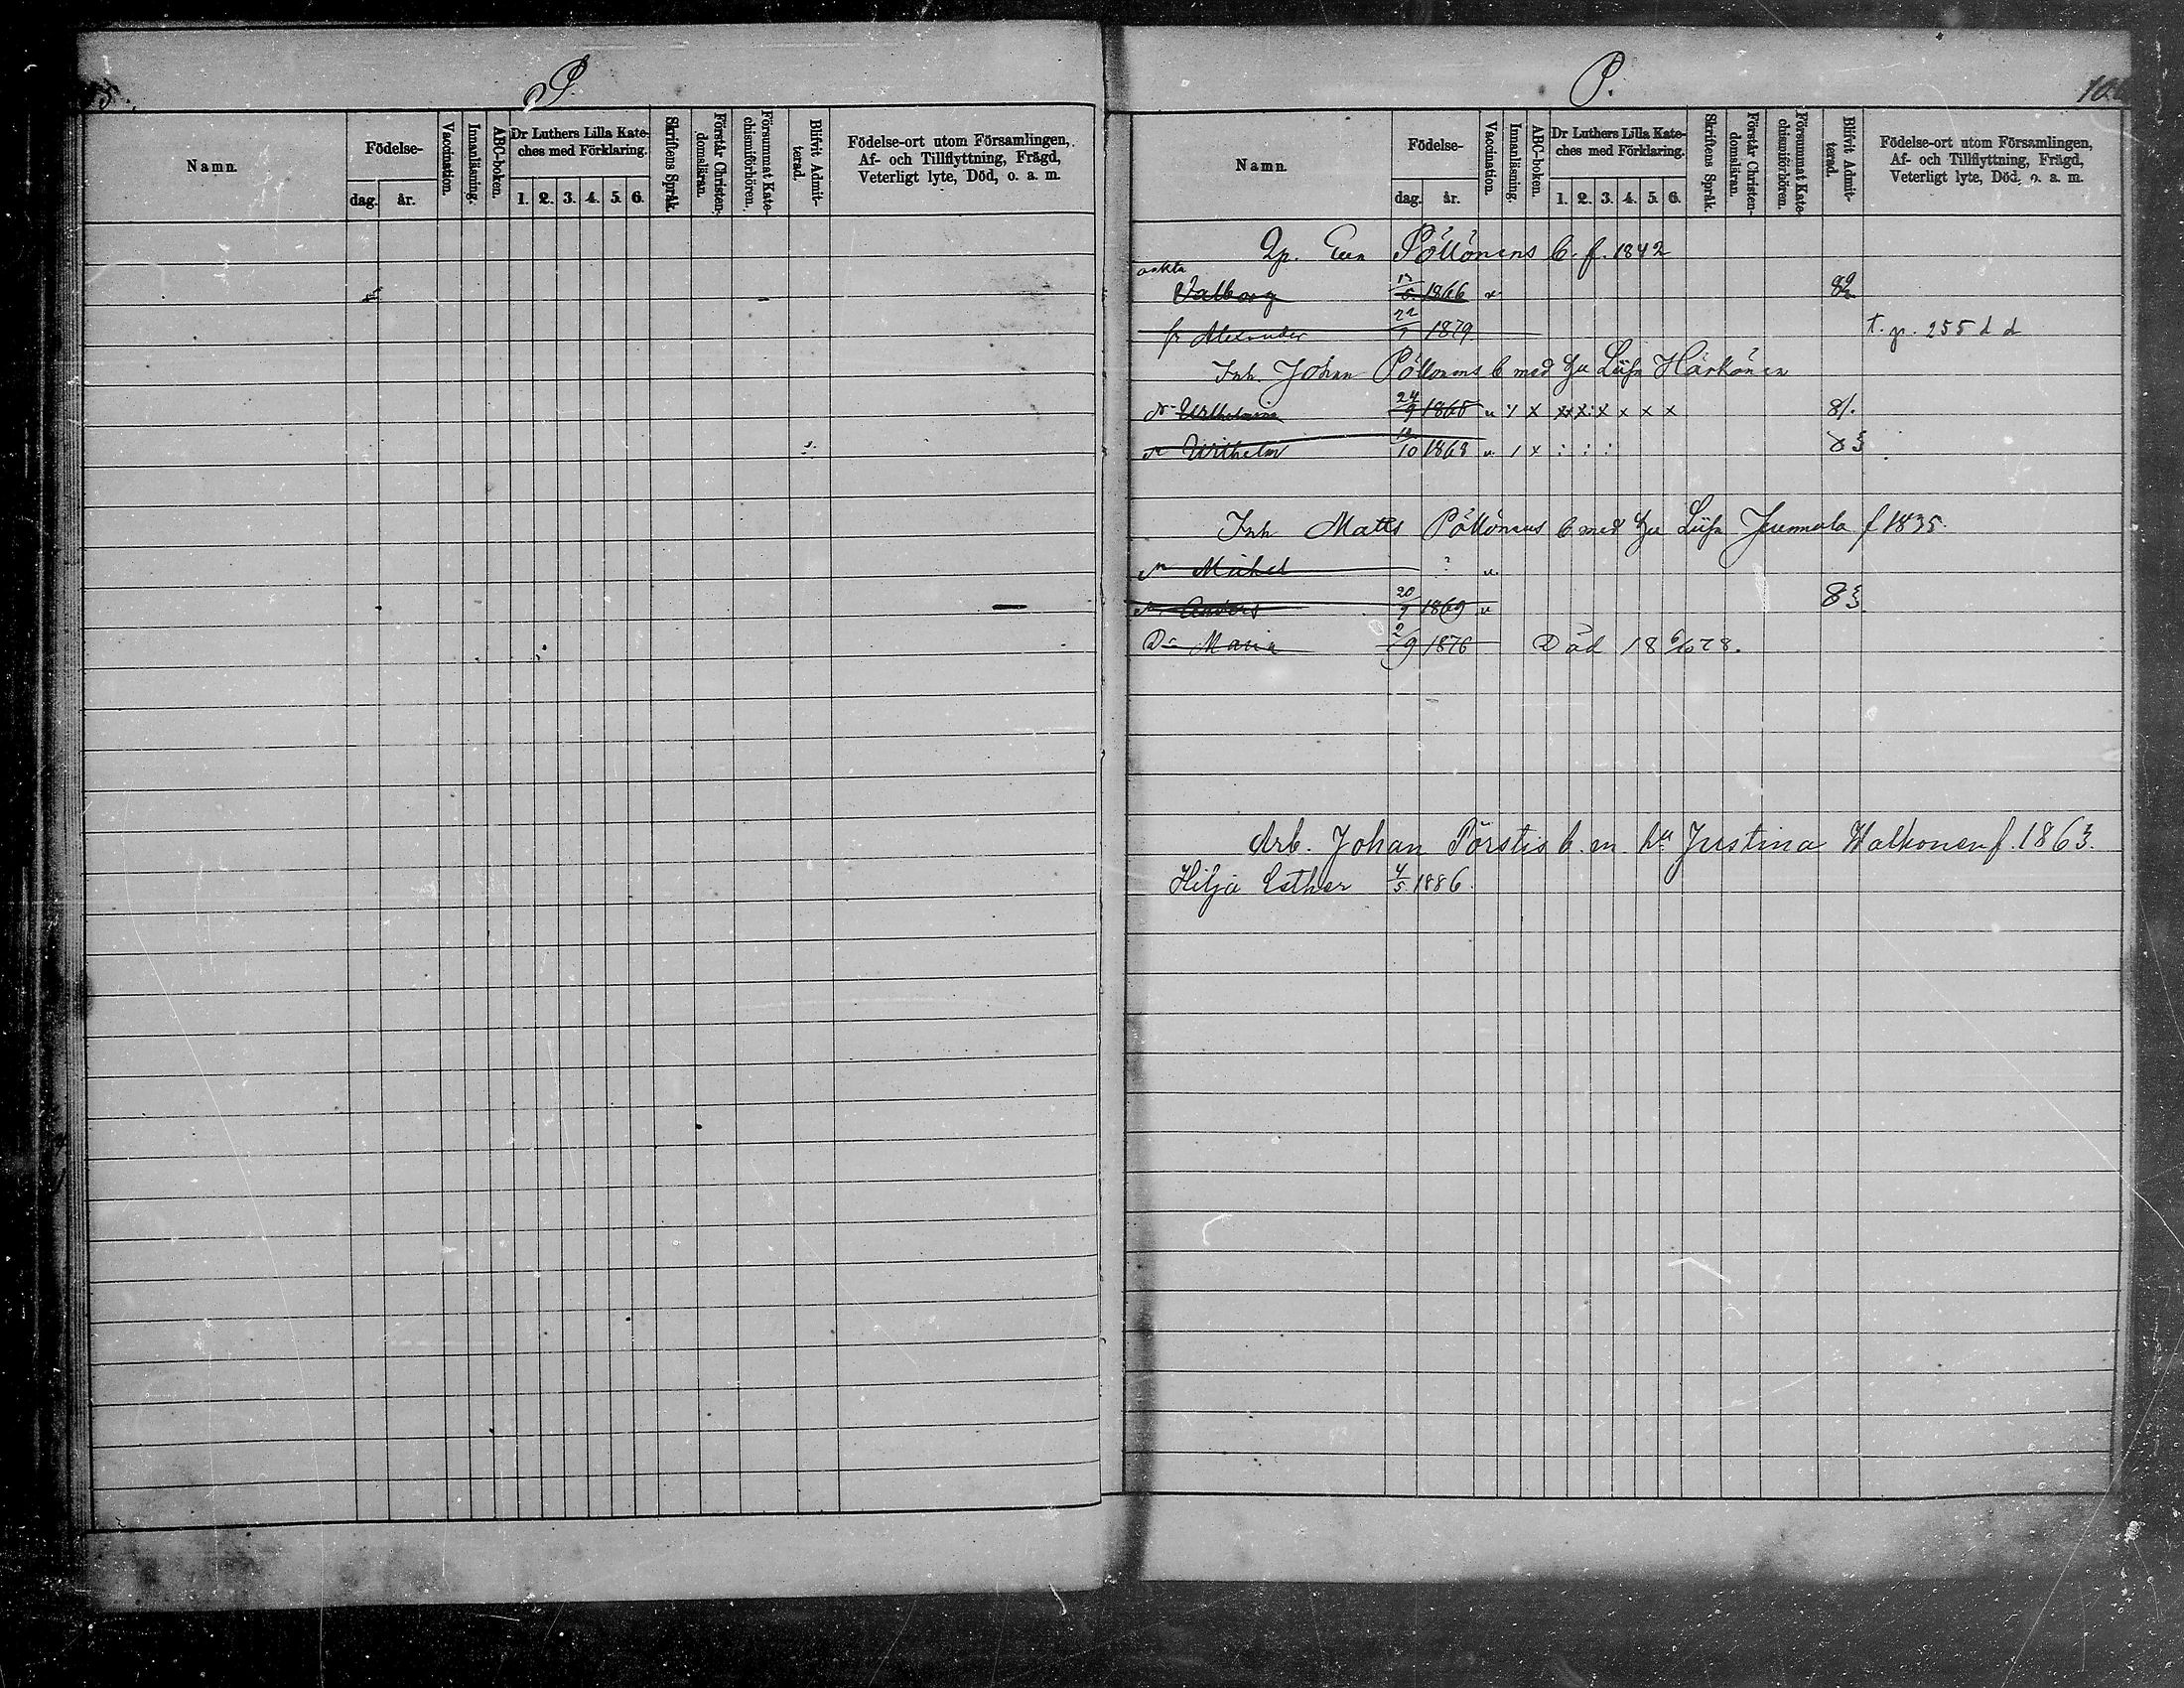 P.
Namn.
Födelse-
dag. år.
Vaccination.
Innanläsning.
ABC-boken.
Dr Luthers Lilla Kate-
ches med Förklaring.
1. 2. 3. 4. 5. 6.
Skriftens Språk.
Förstår Christen-
domsläran.
Försummat Kate-
chismiförhören.
Blifvit Admit-
terad.
Födelse-ort utom Församlingen,
Af- och Tillflyttning, Frägd,
Veterligt lyte, Död, o. a. m.
P.
Namn.
Födelse-
dag. år.
Vaccination.
Innanläsning.
ABC-boken.
Dr Luthers Lilla Kate-
ches med Förklaring.
1. 2. 3. 4. 5. 6.
Skriftens Språk.
Förstår Christen-
domsläran.
Försummat Kate-
chismiförhören.
Blifvit Admit-
terad.
Födelse-ort utom Församlingen,
Af- och Tillflyttning, Frägd,
Veterligt lyte, Död, o. a. m.
Pöllönens b. f. 1842
Valborg 1866
Alexander 1879 t. p. 255
Inh. Johan Pöllönens b med hu Liisa Härkönen
Wilhelmina 24/9 x x x x x 81.
Wilhelm 10 1868 x 83
Inh Matts Pöllönens b med hu Liisa f 1835.
Michel
Anders 20/9 1869 83
Maria 2/9 1876 Död 18 6/10 78.
Arb. Johan Pörstis b. m. hu Justina Walkonen f. 1863.
Hilja Esther 4/5 1886.